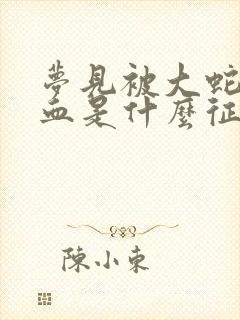 夢見被大蛇
血是什麼征
陳小東